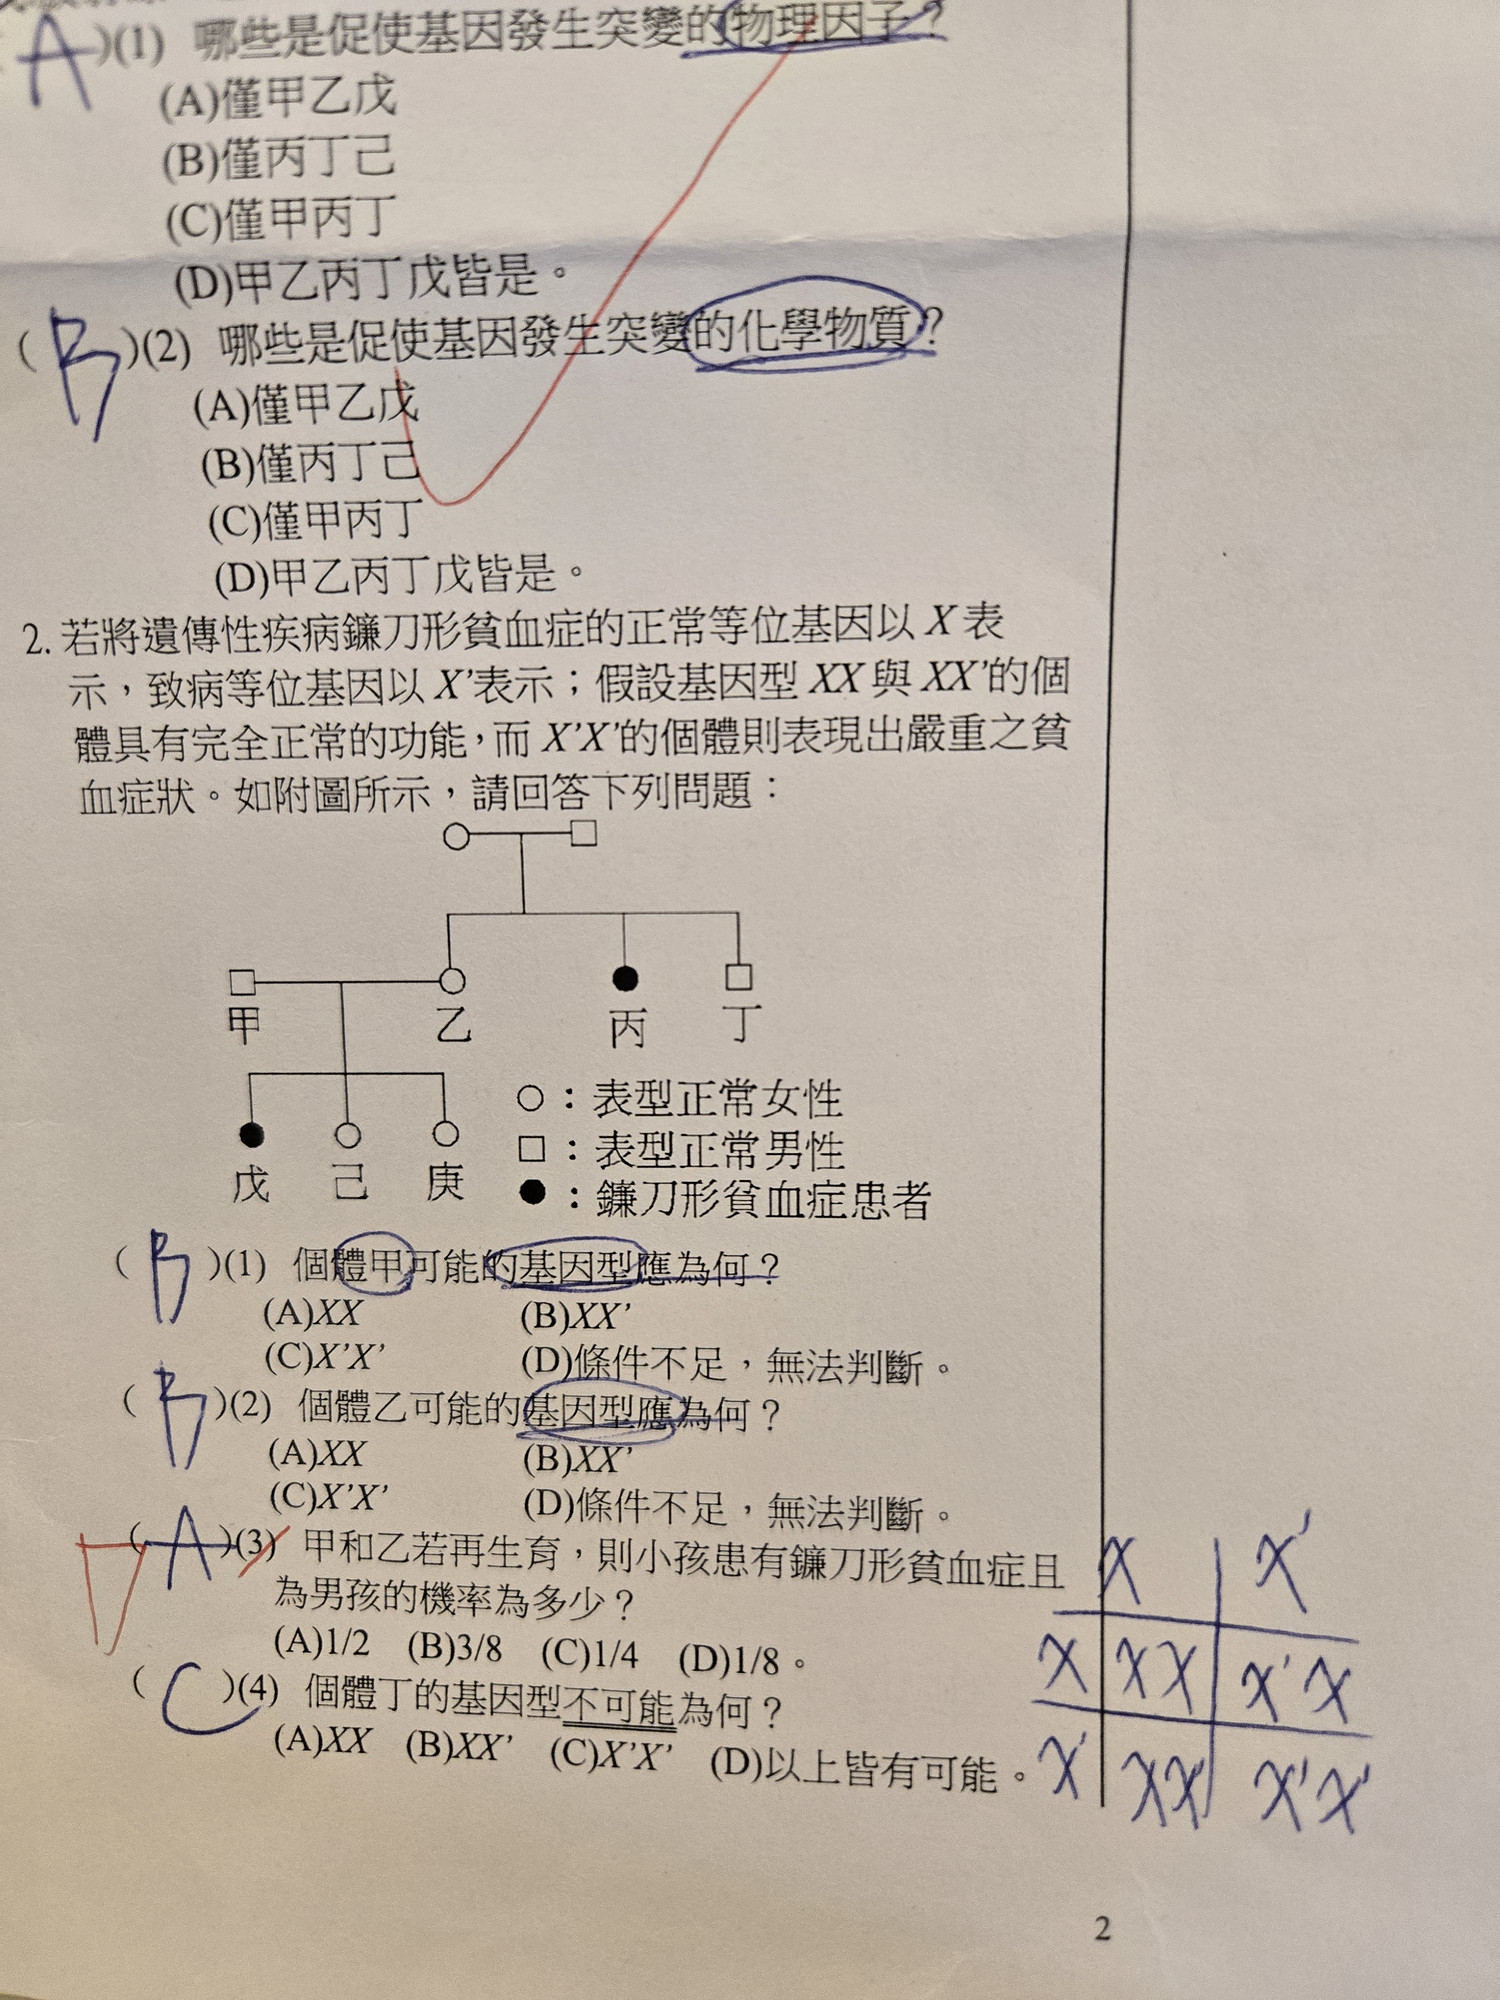 (A)(1) 哪些是促使基因發生突變的物理因子？
(A)僅甲乙戊
(B)僅丙丁己
(C)僅甲丙丁
(D)甲乙丙丁戊皆是。
(B)(2) 哪些是促使基因發生突變的化學物質？
(A)僅甲乙戊
(B)僅丙丁己
(C)僅甲丙丁
(D)甲乙丙丁戊皆是。
2. 若將遺傳性疾病鐮刀形貧血症的正常等位基因以 X 表
示，致病等位基因以 X’表示；假設基因型 XX 與 XX’的個
體具有完全正常的功能，而 X’X’的個體則表現出嚴重之貧
血症狀。如附圖所示，請回答下列問題：
甲 乙 丙 丁
○：表型正常女性
□：表型正常男性
戊 己 庚
●：鐮刀形貧血症患者
(B)(1) 個體甲可能的基因型應為何？
(A)XX (B)XX’
(C)X’X’ (D)條件不足，無法判斷。
(B)(2) 個體乙可能的基因型應為何？
(A)XX (B)XX’
(C)X’X’ (D)條件不足，無法判斷。
(A)(3) 甲和乙若再生育，則小孩患有鐮刀形貧血症且
為男孩的機率為多少？
(A)1/2 (B)3/8 (C)1/4 (D)1/8。
(C)(4) 個體丁的基因型不可能為何？
(A)XX (B)XX’ (C)X’X’ (D)以上皆有可能。
X X'
X XX X'X
X' XX' X'X'
2